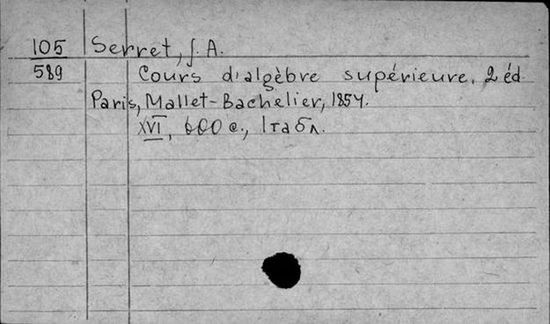 105 Serret, J. A.
589 Cours d'algèbre supérieure. 2 éd
Paris, Mallet-Bachelier, 1854.
XVI, 600 с., 1 табл.